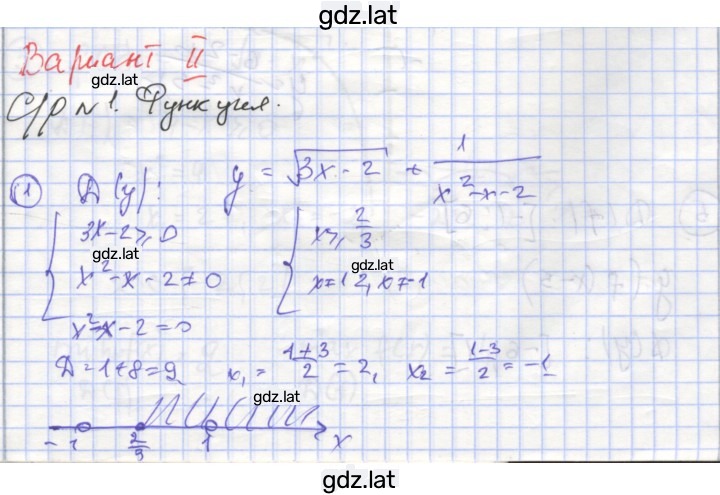 gdz.lat
Вариант II
gdz.lat
С/р №1. Функция.
① Д(y): y = √(3x - 2) + 1/(x² - x - 2)
{ 3x - 2 ≥ 0
x² - x - 2 ≠ 0
{ x ≥ 2/3
gdz.lat
x ≠ 2, x ≠ -1
x² - x - 2 = 0
Д = 1 + 8 = 9
x₁ = (1+3)/2 = 2, x₂ = (1-3)/2 = -1
gdz.lat
-1 2/3 1 x
gdz.lat